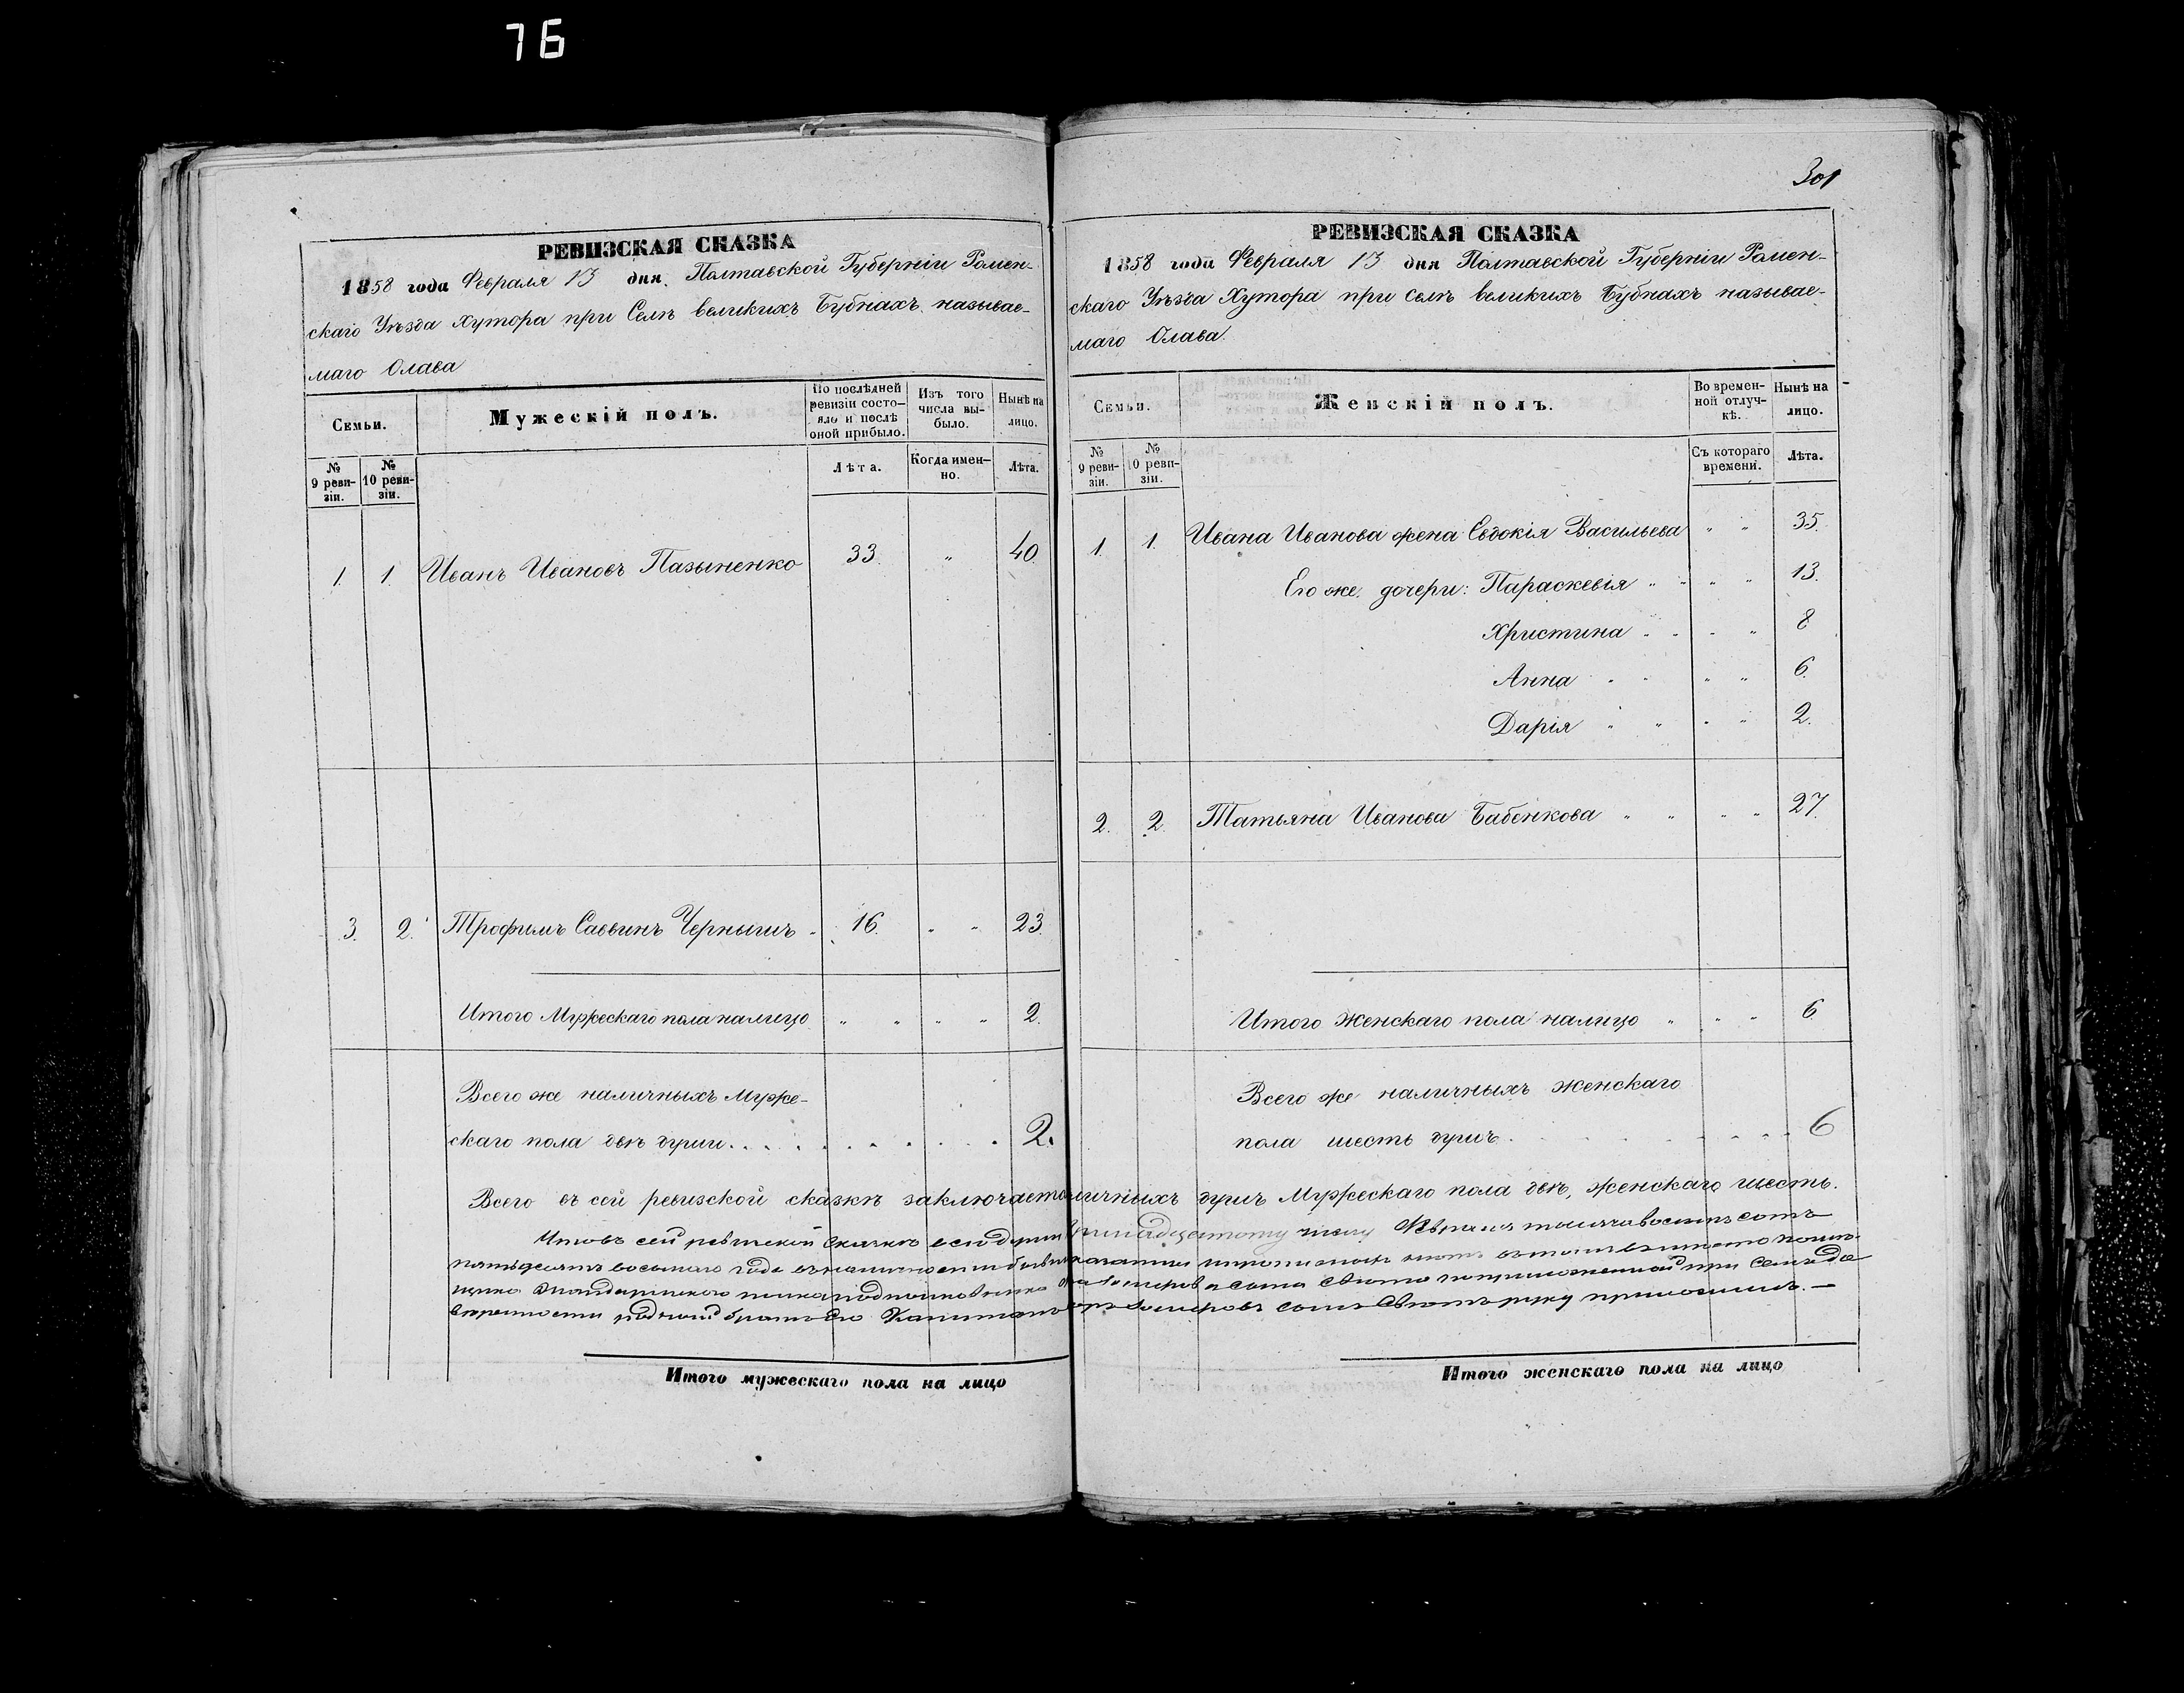 76
РЕВИЗСКАЯ СКАЗКА
1858 года Февраля 13 дня. Полтавской Губерніи Ромен-
скаго Уѣзда Хутора при Селѣ великихъ Бубнахъ называе-
маго Олава
Семьи.
Мужескій полъ.
По послѣдней ревизіи состо-яло и послѣ оной прибыло.
Изъ того числа вы-было.
Нынѣ на лицо.
№ 9 реви-зіи.
№ 10 реви-зіи.
Лѣта.
Когда имен-но.
Лѣта.
1. 1. Иванъ Ивановъ Пазыненко 33. " 40.
3. 2. Трофимъ Саввинъ Чернышъ " 16. " " 23.
Итого Мужескаго пола налицо " " " " 2.
Всего же наличныхъ Муже-
скаго пола двѣ души . . . . . . . . . . 2.
301
РЕВИЗСКАЯ СКАЗКА
1858 года Февраля 13 дня Полтавской Губерніи Ромен-
скаго Уѣзда Хутора при селѣ великихъ Бубнахъ называе-
маго Олава.
Семьи.
Женскій полъ.
Во времен-ной отлуч-кѣ.
Нынѣ на лицо.
№ 9 реви-зіи.
№ 10 реви-зіи.
Съ котораго времени.
Лѣта.
1. 1. Ивана Иванова жена Евдокія Васильева " " 35.
Его же дочери: Параскевія " " " " 13.
Христина " " " " 8
Анна " " " " 6.
Дарія " " " " 2.
2. 2. Татьяна Иванова Бабенкова " " " " 27.
Итого Женскаго пола налицо " " " 6
Всего же наличныхъ женскаго
пола шесть душъ . . . . . . . . 6
Всего въ сей ревизской сказкѣ заключается наличныхъ душъ Мужескаго пола двѣ, женскаго шесть.
Что въ сей ревизской сказкѣ всѣ души Февраля тысяча восемь сотъ
пятьдесятъ восьмаго года
родной братъ его руку приложилъ. —
Итого мужескаго пола на лицо
Итого женскаго пола на лицо